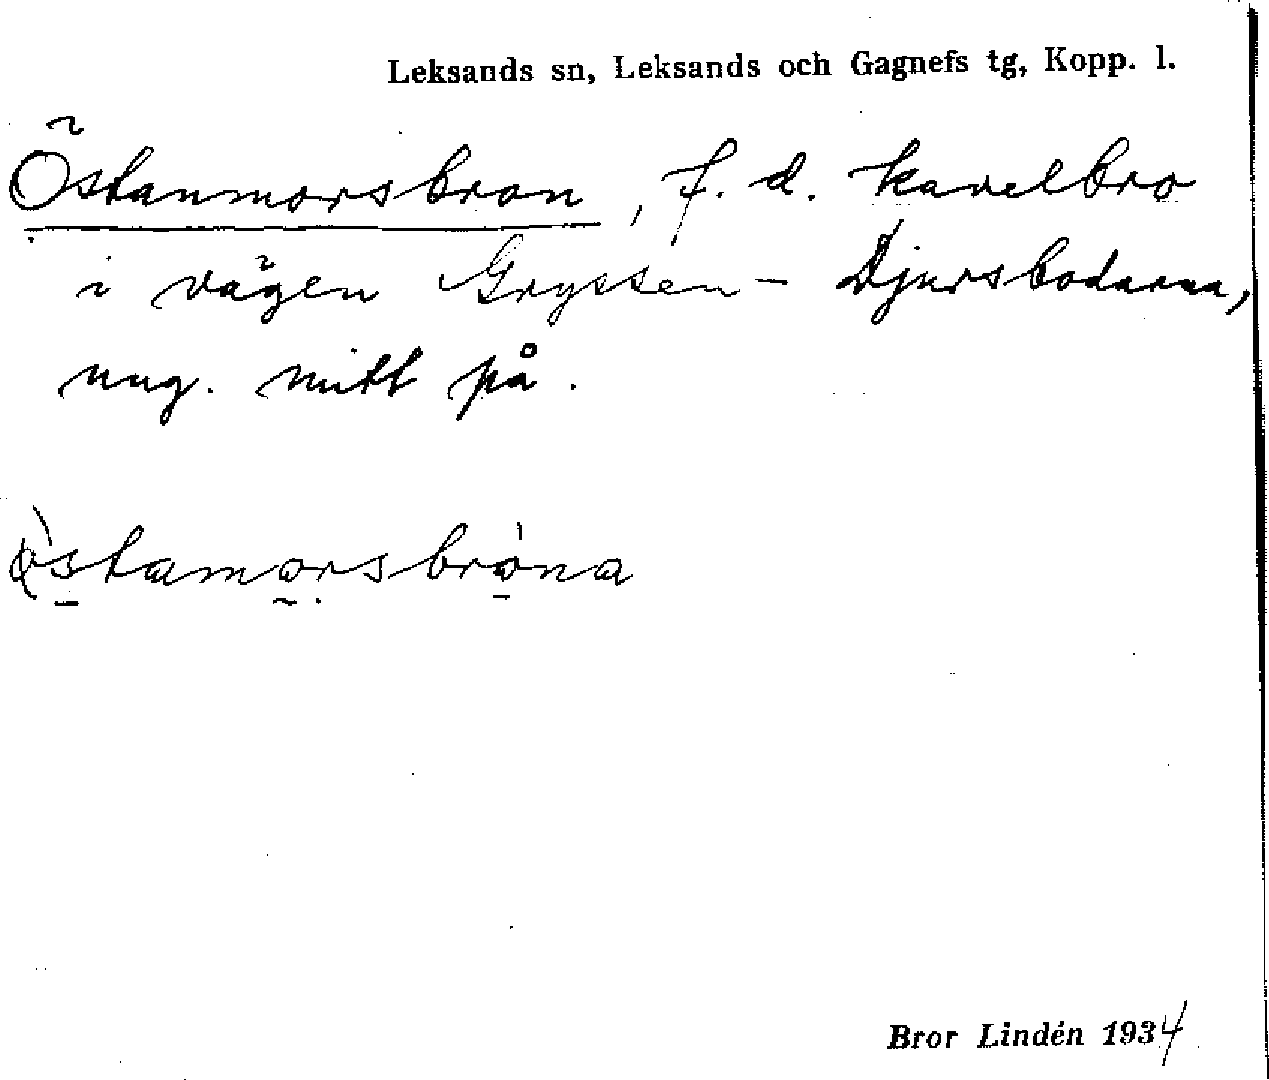 Leksands sn, Leksands och Gagnefs tg, Kopp. l.
Östanmorsbron, f. d. kavelbro
i vägen Gryssen - Djursbodarna,
ung. mitt på.
östamorsbróna
Bror Lindén 1934